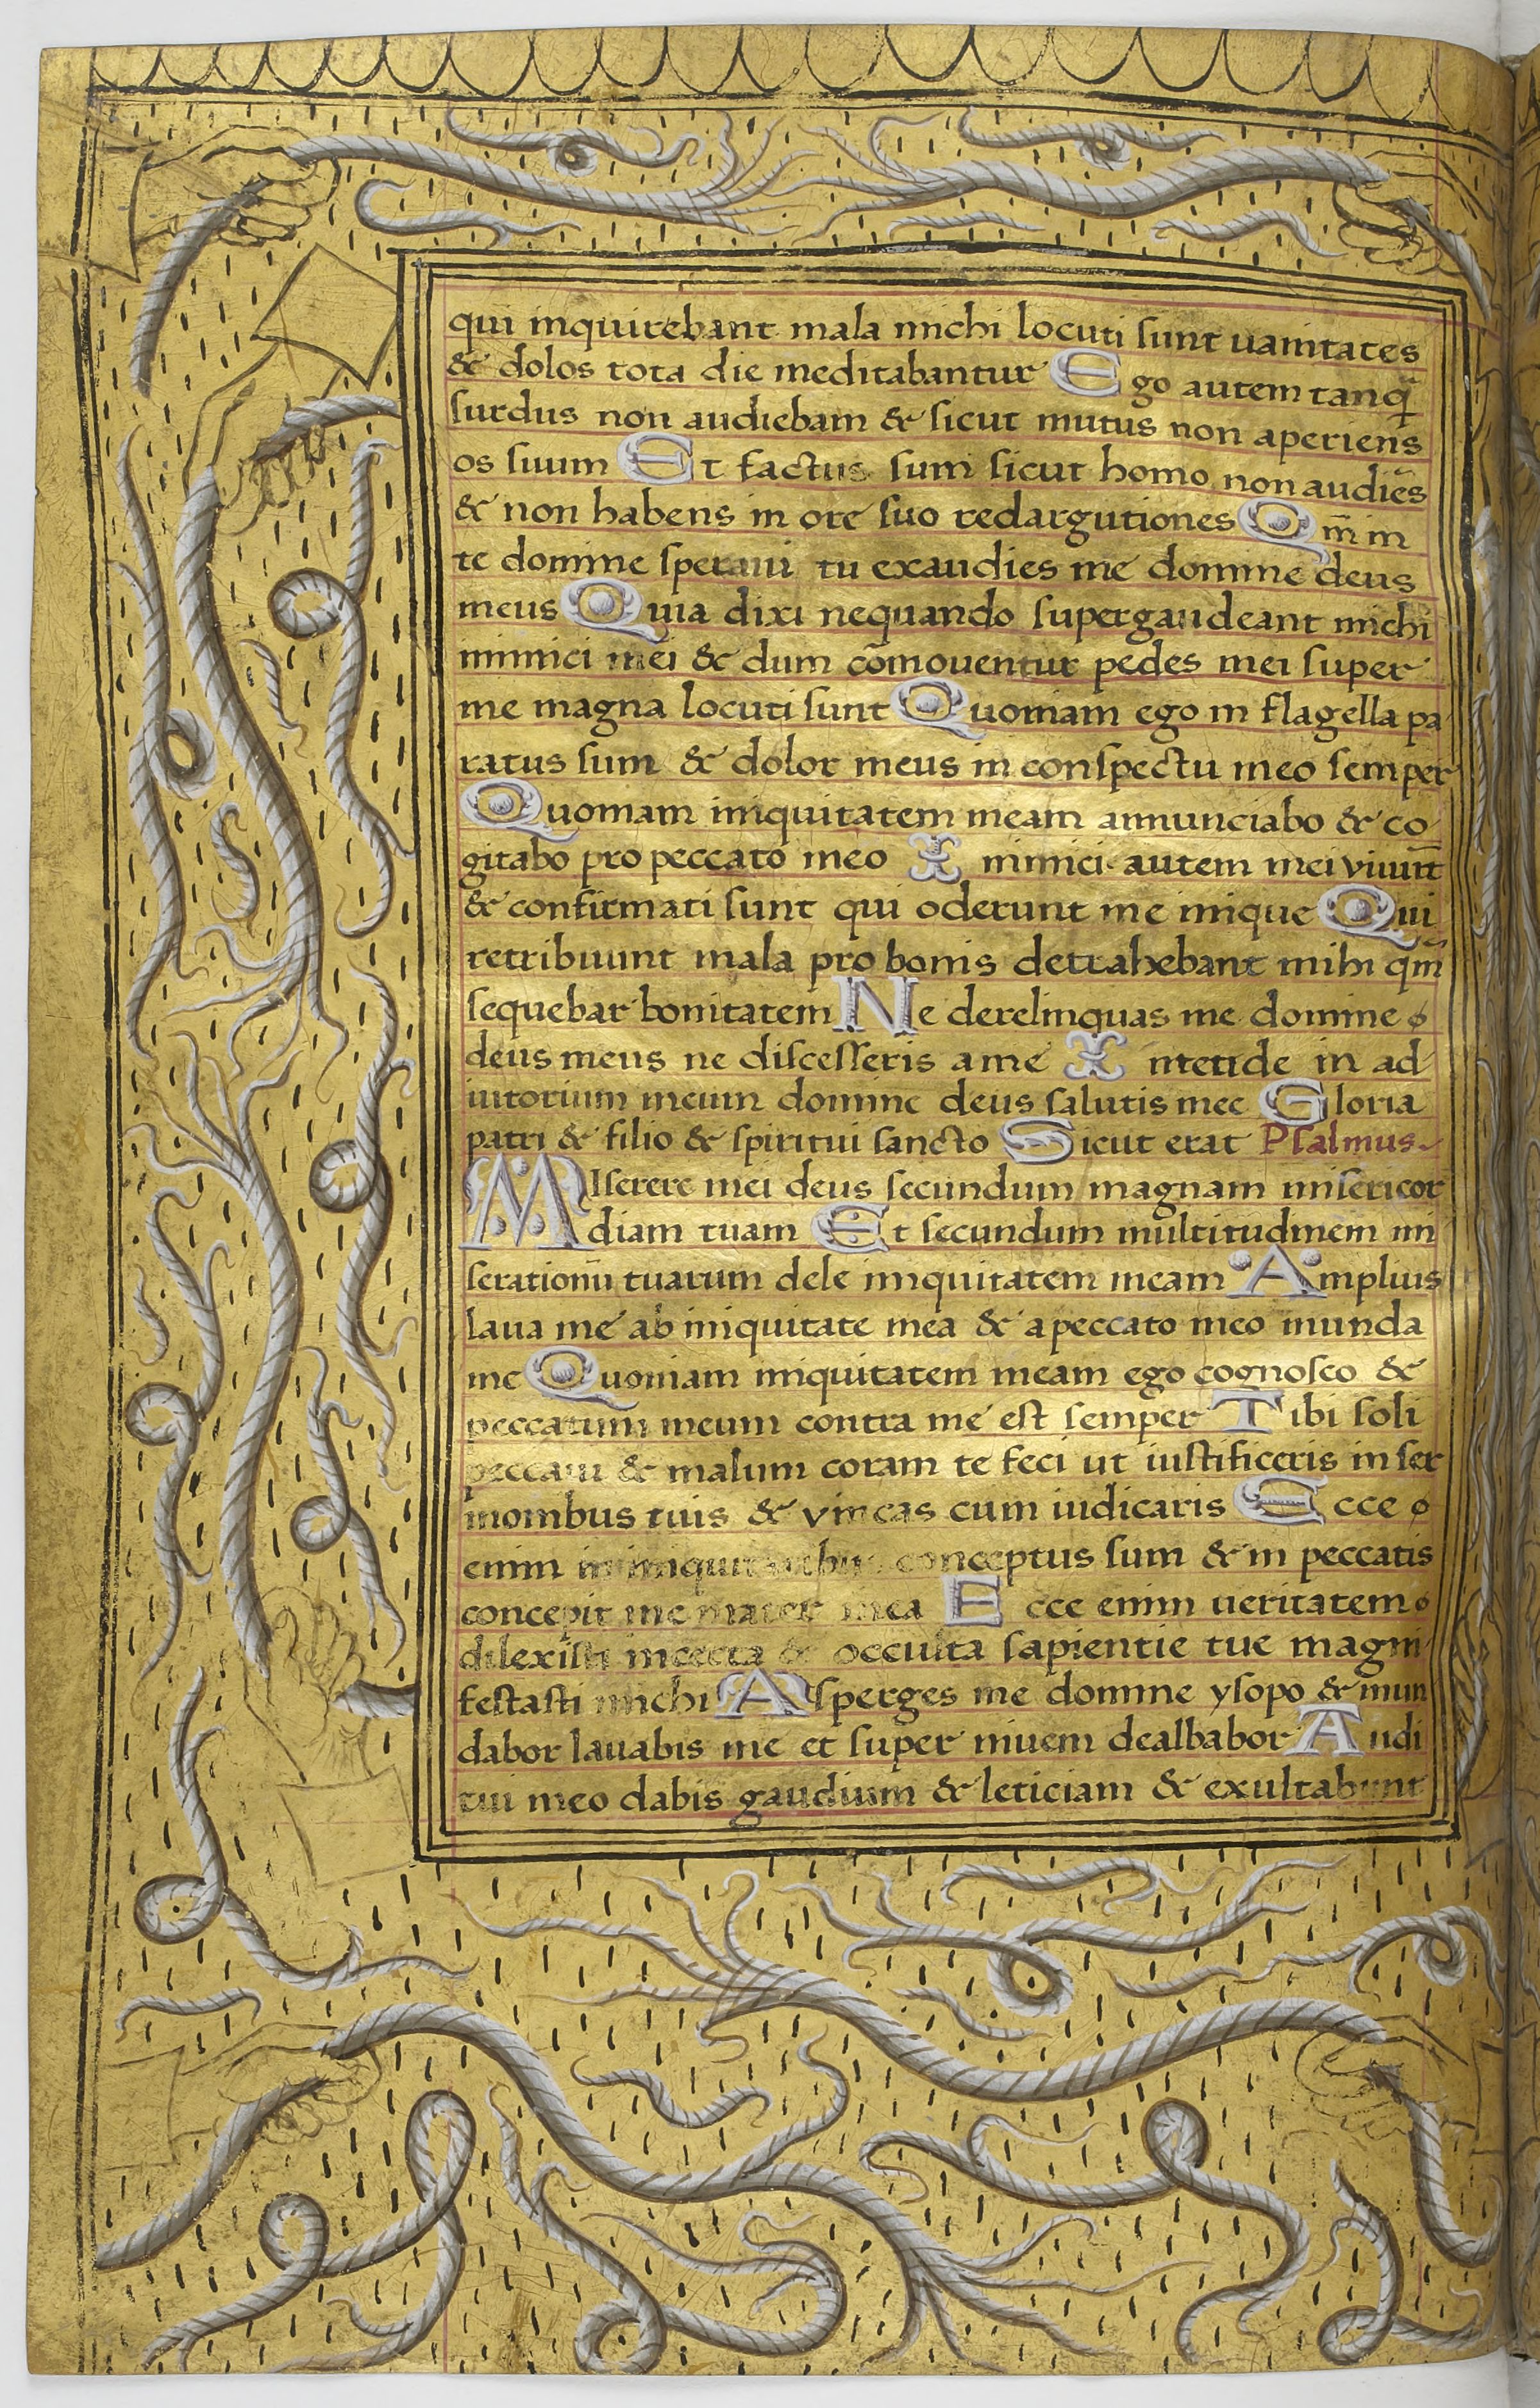 qui inquirebant mala michi locuti sunt uanitates
& dolos tota die meditabantur Ego autem tanq̄
surdus non audiebam & sicut mutus non aperiens
os suum Et factus sum sicut homo non audiēs
& non habens in ore suo redargutiones Qm̄ in
te domine speraui tu exaudies me domine deus
meus Quia dixi nequando supergaudeant michi
inimici mei & dum cōmouentur pedes mei super
me magna locuti sunt Quoniam ego in flagella pa
ratus sum & dolor meus in conspectu meo semper
Quoniam iniquitatem meam annunciabo & co
gitabo pro peccato meo Inimici autem mei viuūt
& confirmati sunt qui oderunt me inique Qui
retribuunt mala pro bonis detrahebant mihi qm̄
sequebar bonitatem Ne derelinquas me domine
deus meus ne discesseris a me Intende in ad
iutorium meum domine deus salutis mee Gloria
patri & filio & spiritui sancto Sicut erat Psalmus
Miserere mei deus secundum magnam misericor
diam tuam Et secundum multitudinem mi
serationū tuarum dele iniquitatem meam Amplius
laua me ab iniquitate mea & a peccato meo munda
me Quoniam iniquitatem meam ego cognosco &
peccatum meum contra me est semper Tibi soli
peccaui & malum coram te feci ut iustificeris in ser
monibus tuis & vincas cum iudicaris Ecce
enim in iniquitatibus conceptus sum & in peccatis
concepit me mater mea Ecce enim ueritatem
dilexisti incerta & occulta sapientie tue magni
festasti michi Asperges me domine ysopo & mun
dabor lauabis me et super niuem dealbabor Audi
tui meo dabis gaudium & leticiam & exultabunt